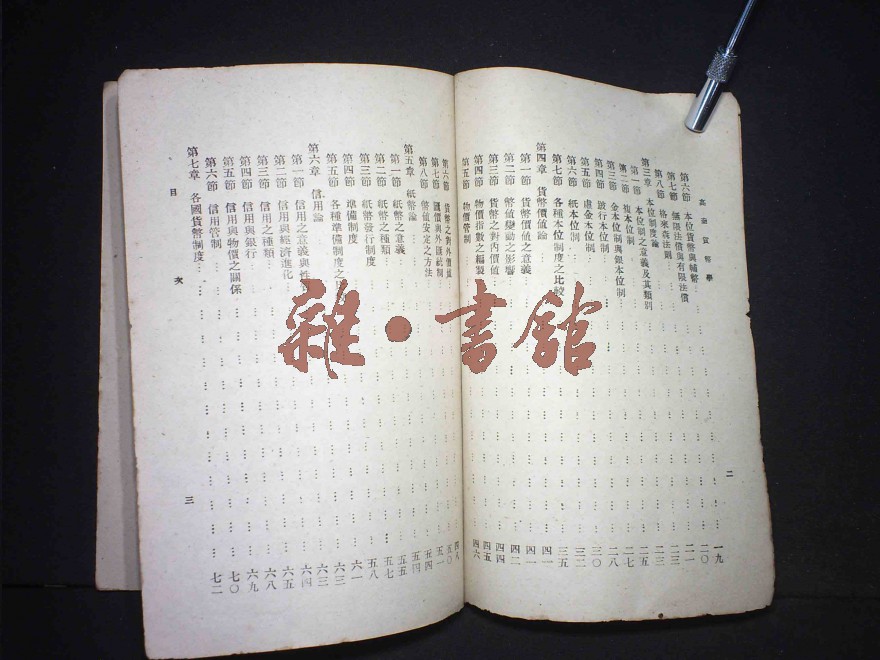 貨幣學
二
第六節 本位貨幣與輔幣 …… 一九
第七節 無限法償與有限法償 …… 二〇
第八節 格來森法則 …… 二一
第三章 本位制度論 …… 二三
第一節 本位制之意義及其類別 …… 二三
第二節 複本位制 …… 二五
第三節 金本位制與銀本位制 …… 二七
第四節 跛行本位制 …… 二八
第五節 虛金本位制 …… 三〇
第六節 紙本位制 …… 三二
第七節 各種本位制度之比較 …… 三五
第四章 貨幣價值論 …… 四一
第一節 貨幣價值之意義 …… 四一
第二節 幣值變動之影響 …… 四二
第三節 貨幣之對內價值 …… 四四
第四節 物價指數之編製 …… 四五
第五節 物價管制 …… 四六
第六節 貨幣之對外價值 …… 四八
第七節 匯價與外匯統制 …… 五〇
第八節 幣值安定之方法 …… 五一
第五章 紙幣論 …… 五四
第一節 紙幣之意義 …… 五四
第二節 紙幣之種類 …… 五五
第三節 紙幣發行制度 …… 五七
第四節 準備制度 …… 五八
第五節 各種準備制度之 …… 六一
第六章 信用論 …… 六三
第一節 信用之意義與性 …… 六三
第二節 信用與經濟進化 …… 六四
第三節 信用之種類 …… 六五
第四節 信用與銀行 …… 六八
第五節 信用與物價之關係 …… 六九
第六節 信用管制 …… 七〇
第七章 各國貨幣制度 …… 七二
目次
三
雜·書館